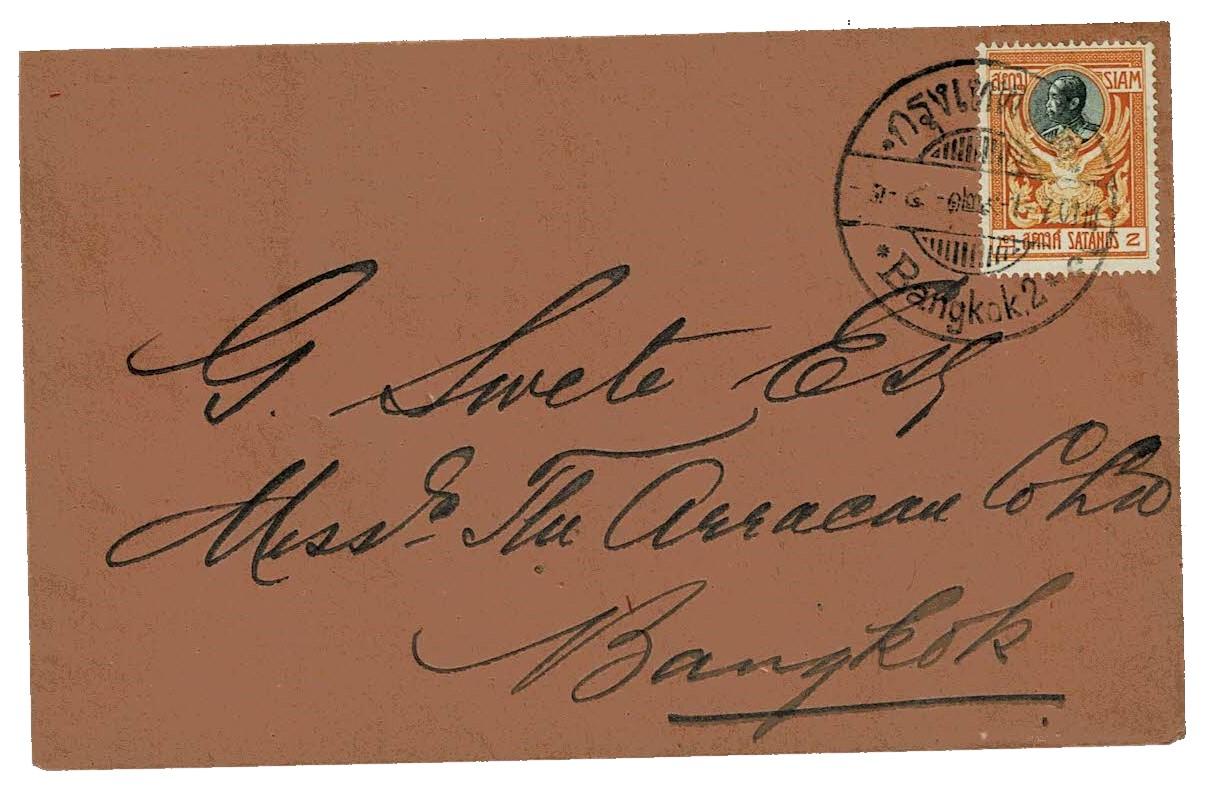 สยาม SIAM
๒ สตางค์ SATANGS 2
กรุงเทพ
Bangkok.2
G. Swete Esq
Messrs The Arracan Co Ld
Bangkok